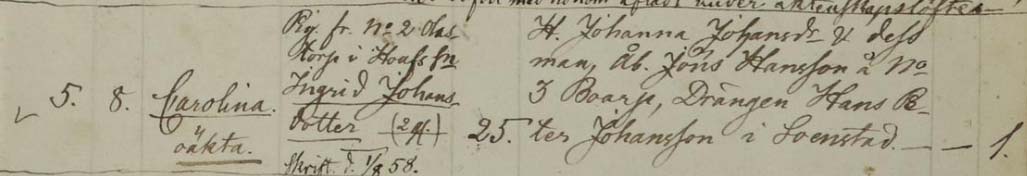 med honom afladt under äktenskapslöfte
5. 8. Carolina.
oäkta.
Pig. fr. No 2 Olas
torp i Hoafs fn
Ingrid Johans
dotter (2 gf.)
skrift. d. 1/8 58.
25.
H. Johanna Johansdr & dess
man, Åb. Jöns Hansson å No
3 Boarp, Drängen Hans Pe
ter Johansson i Loenstad. — — 1.